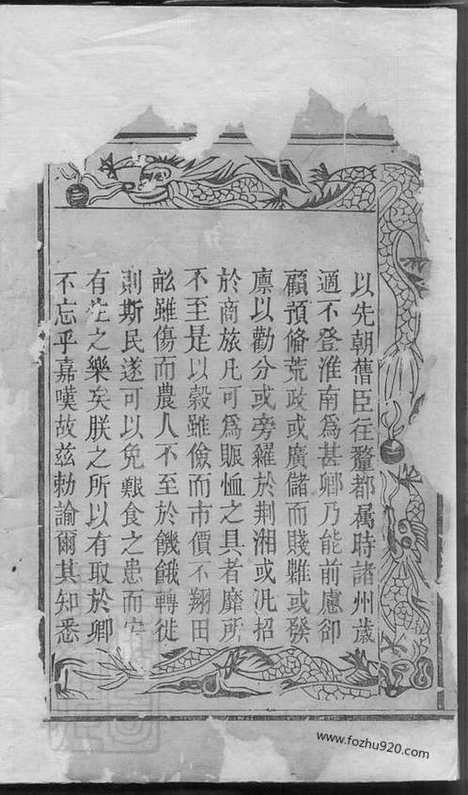 以先朝舊臣往釐都属時諸州歳
適不登淮南爲甚卿乃能前慮卻
顧預偹荒政或廣儲而賤糶或發
廪以勸分或旁糴於荆湘或汎招
於商旅凡可爲賑恤之具者靡所
不至是以榖雖儉而市價不翔田
畝雖傷而農人不至於饑餓轉徙
則斯民遂可以免艱食之患而安
有生之樂矣朕之所以有取於卿
不忘乎嘉嘆故兹勅諭爾其知悉
www.fozhu920.com